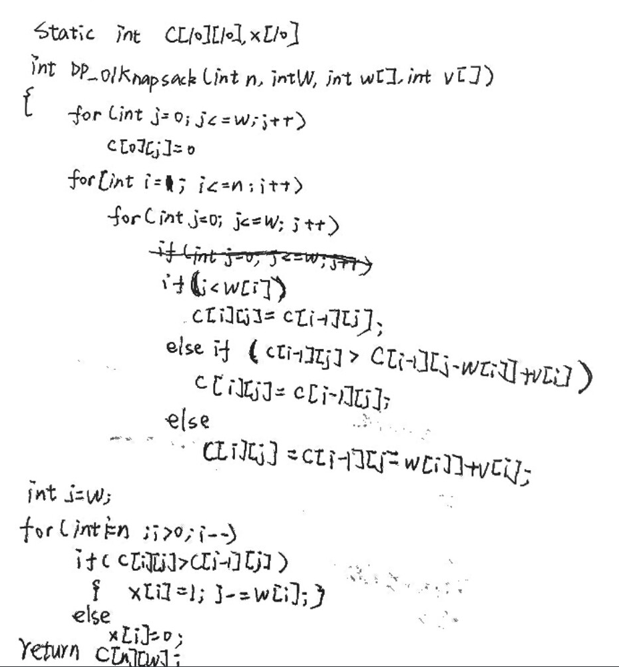 Static int C[10][10], x[10]
int DP_01Knapsack(int n, int W, int w[], int v[])
{ for (int j=0; j<=w; j++)
C[0][j]=0
for[int i=1; i<=n; i++)
for(int j=0; j<=w; j++)
if(int j=0; j<=w; j++)
if(j<w[i])
C[i][j]=C[i-1][j];
else if (C[i-1][j]>C[i-1][j-w[i]]+v[i])
C[i][j]=C[i-1][j];
else
C[i][j]=C[i-1][j-w[i]]+v[i];
int j=w;
for(int i=n;i>0;i--)
if(C[i][j]>C[i-1][j])
{ x[i]=1; j-=w[i];}
else
x[i]=0;
return C[n][w];